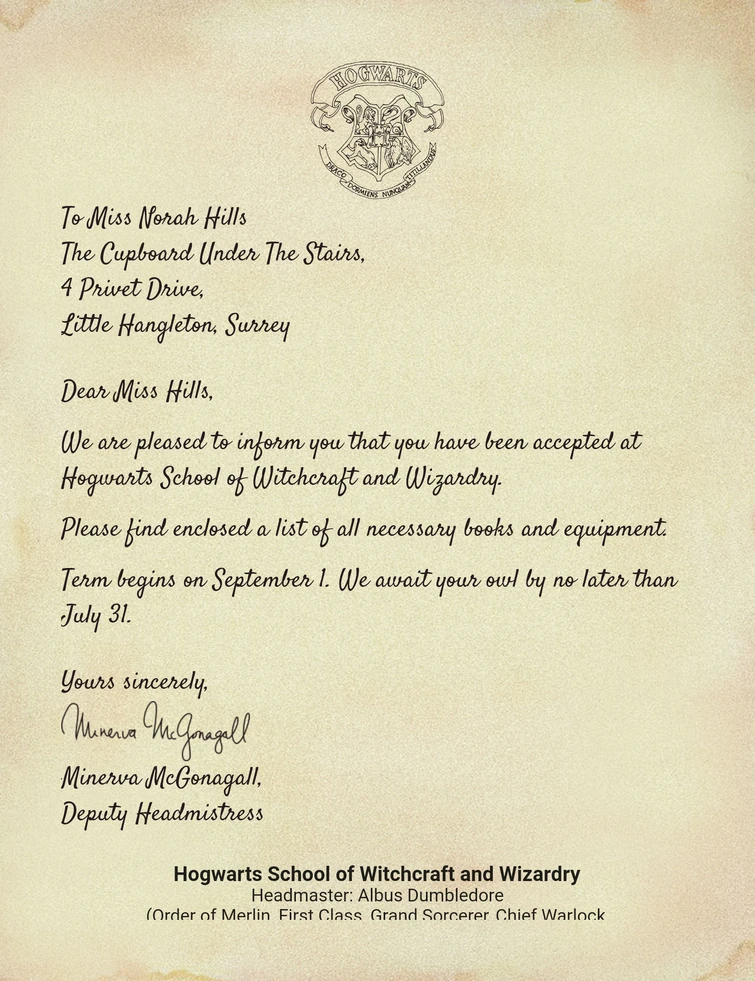 HOGWARTS
DRACO DORMIENS NUNQUAM TITILLANDUS
To Miss Norah Hills
The Cupboard Under The Stairs,
4 Privet Drive,
Little Hangleton, Surrey
Dear Miss Hills,
We are pleased to inform you that you have been accepted at
Hogwarts School of Witchcraft and Wizardry.
Please find enclosed a list of all necessary books and equipment.
Term begins on September 1. We await your owl by no later than
July 31.
Yours sincerely,
Minerva McGonagall
Minerva McGonagall,
Deputy Headmistress
Hogwarts School of Witchcraft and Wizardry
Headmaster: Albus Dumbledore
(Order of Merlin, First Class, Grand Sorcerer, Chief Warlock